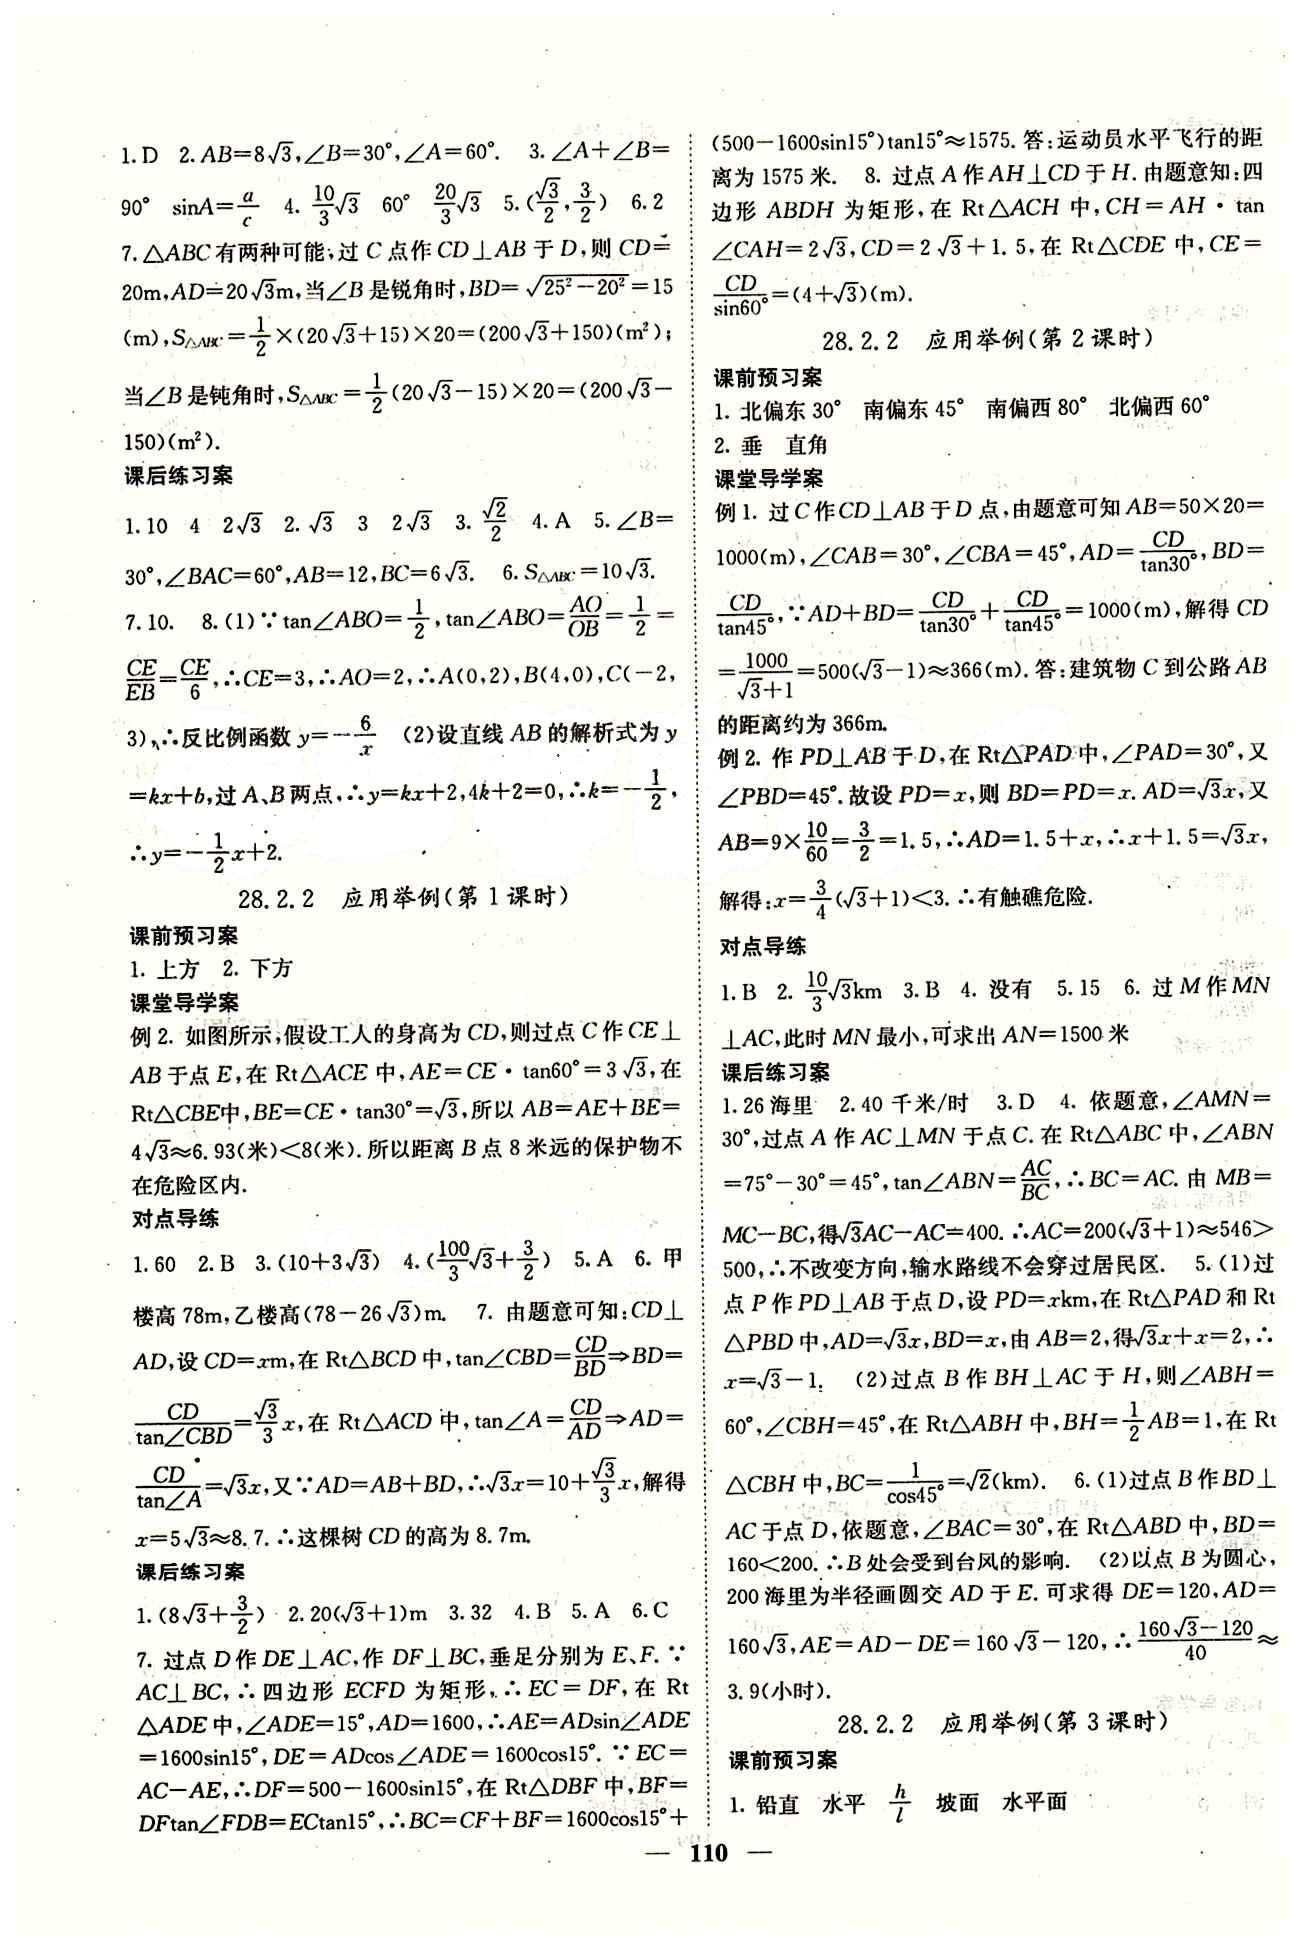 1.D　2.AB=8√3,∠B=30°,∠A=60°.　3.∠A+∠B=
90°　sinA=a/c　4.10/3√3　60°　20/3√3　5.(√3/2,3/2)　6.2
7.△ABC有两种可能,过C点作CD⊥AB于D,则CD=
20m,AD=20√3m,当∠B是锐角时,BD=√(25²-20²)=15
(m),S△ABC=1/2×(20√3+15)×20=(200√3+150)(m²);
当∠B是钝角时,S△ABC=1/2(20√3-15)×20=(200√3-
150)(m²).
课后练习案
1.10　4　2√3　2.√3　3　2√3　3.√2/2　4.A　5.∠B=
30°,∠BAC=60°,AB=12,BC=6√3.　6.S△ABC=10√3.
7.10.　8.(1)∵tan∠ABO=1/2,tan∠ABO=AO/OB=1/2=
CE/EB=CE/6,∴CE=3,∴AO=2,∴A(0,2),B(4,0),C(-2,
3),∴反比例函数y=-6/x　(2)设直线AB的解析式为y
=kx+b,过A、B两点,∴y=kx+2,4k+2=0,∴k=-1/2,
∴y=-1/2x+2.
28.2.2　应用举例(第1课时)
课前预习案
1. 上方　2. 下方
课堂导学案
例2. 如图所示,假设工人的身高为CD,则过点C作CE⊥
AB于点E,在Rt△ACE中,AE=CE·tan60°=3√3,在
Rt△CBE中,BE=CE·tan30°=√3,所以AB=AE+BE=
4√3≈6.93(米)<8(米).所以距离B点8米远的保护物不
在危险区内.
对点导练
1.60　2.B　3.(10+3√3)　4.(100/3√3+3/2)　5.A　6. 甲
楼高78m,乙楼高(78-26√3)m.　7. 由题意可知:CD⊥
AD,设CD=xm,在Rt△BCD中,tan∠CBD=CD/BD⇒BD=
CD/tan∠CBD=√3/3x,在Rt△ACD中,tan∠A=CD/AD⇒AD=
CD/tan∠A=√3x,又∵AD=AB+BD,∴√3x=10+√3/3x,解得
x=5√3≈8.7.∴这棵树CD的高为8.7m.
课后练习案
1.(8√3+3/2)　2.20(√3+1)m　3.32　4.B　5.A　6.C
7. 过点D作DE⊥AC,作DF⊥BC,垂足分别为E、F.∵
AC⊥BC,∴四边形ECFD为矩形,∴EC=DF,在Rt
△ADE中,∠ADE=15°,AD=1600,∴AE=ADsin∠ADE
=1600sin15°,DE=ADcos∠ADE=1600cos15°.∵EC=
AC-AE,∴DF=500-1600sin15°,在Rt△DBF中,BF=
DFtan∠FDB=ECtan15°,∴BC=CF+BF=1600cos15°+
(500-1600sin15°)tan15°≈1575.答:运动员水平飞行的距
离为1575米.　8. 过点A作AH⊥CD于H.由题意知:四
边形ABDH为矩形,在Rt△ACH中,CH=AH·tan
∠CAH=2√3,CD=2√3+1.5,在Rt△CDE中,CE=
CD/sin60°=(4+√3)(m).
28.2.2　应用举例(第2课时)
课前预习案
1. 北偏东30°　南偏东45°　南偏西80°　北偏西60°
2. 垂　直角
课堂导学案
例1. 过C作CD⊥AB于D点,由题意可知AB=50×20=
1000(m),∠CAB=30°,∠CBA=45°,AD=CD/tan30°,BD=
CD/tan45°,∵AD+BD=CD/tan30°+CD/tan45°=1000(m),解得CD
=1000/(√3+1)=500(√3-1)≈366(m).答:建筑物C到公路AB
的距离约为366m.
例2. 作PD⊥AB于D,在Rt△PAD中,∠PAD=30°,又
∠PBD=45°.故设PD=x,则BD=PD=x.AD=√3x,又
AB=9×10/60=3/2=1.5,∴AD=1.5+x,∴x+1.5=√3x,
解得:x=3/4(√3+1)<3.∴有触礁危险.
对点导练
1.B　2.10/3√3km　3.B　4. 没有　5.15　6. 过M作MN
⊥AC,此时MN最小,可求出AN=1500米
课后练习案
1.26海里　2.40千米/时　3.D　4. 依题意,∠AMN=
30°,过点A作AC⊥MN于点C.在Rt△ABC中,∠ABN
=75°-30°=45°,tan∠ABN=AC/BC,∴BC=AC.由MB=
MC-BC,得√3AC-AC=400.∴AC=200(√3+1)≈546>
500,∴不改变方向,输水路线不会穿过居民区.　5.(1)过
点P作PD⊥AB于点D,设PD=xkm,在Rt△PAD和Rt
△PBD中,AD=√3x,BD=x,由AB=2,得√3x+x=2,∴
x=√3-1.　(2)过点B作BH⊥AC于H,则∠ABH=
60°,∠CBH=45°,在Rt△ABH中,BH=1/2AB=1,在Rt
△CBH中,BC=1/cos45°=√2(km).　6.(1)过点B作BD⊥
AC于点D,依题意,∠BAC=30°,在Rt△ABD中,BD=
160<200.∴B处会受到台风的影响.　(2)以点B为圆心,
200海里为半径画圆交AD于E.可求得DE=120,AD=
160√3,AE=AD-DE=160√3-120,∴(160√3-120)/40≈
3.9(小时).
28.2.2　应用举例(第3课时)
课前预习案
1. 铅直　水平　h/l　坡面　水平面
— 110 —